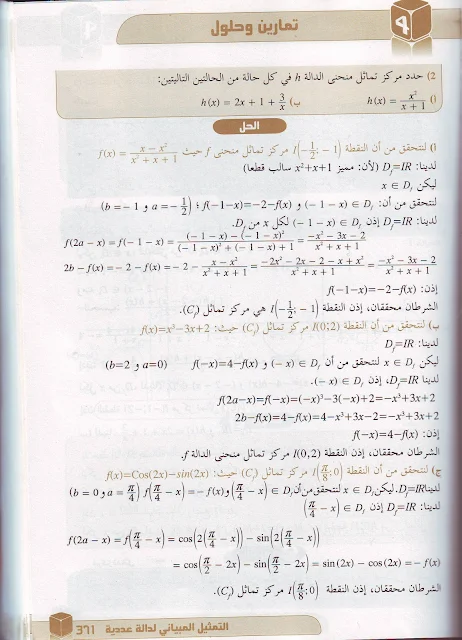 تمارين وحلول
2) حدد مركز تماثل منحنى الدالة h في كل حالة من الحالتين التاليتين:
أ) h(x) = x²/(x + 1)    ب) h(x) = 2x + 1 + 3/x
الحل
أ) لنتحقق من أن النقطة I(-1/2; -1) مركز تماثل منحنى f حيث f(x) = (x - x²)/(x² + x + 1)
لدينا: D_f=IR (لأن: مميز x²+x+1 سالب قطعا)
ليكن x ∈ D_f
لنتحقق من أن: (-1 - x) ∈ D_f و f(-1-x)=-2-f(x) ؛ (a = -1/2 و b = -1)
لدينا: D_f=IR إذن (-1 - x) ∈ D_f لكل x من D_f.
f(2a - x) = f(-1 - x) = ((-1 - x) - (-1 - x)²)/((-1 - x)² + (-1 - x) + 1) = (-x² - 3x - 2)/(x² + x + 1)
2b - f(x) = -2 - f(x) = -2 - (x - x²)/(x² + x + 1) = (-2x² - 2x - 2 - x + x²)/(x² + x + 1) = (-x² - 3x - 2)/(x² + x + 1)
إذن: f(-1-x)=-2-f(x)
الشرطان محققان، إذن النقطة I(-1/2; -1) هي مركز تماثل (C_f).
ب) لنتحقق من أن النقطة I(0;2) مركز تماثل (C_f) حيث: f(x)=x³-3x+2
لدينا: D_f=IR
ليكن x ∈ D_f لنتحقق من أن (-x) ∈ D_f و f(-x)=4-f(x) (a=0 و b=2)
لدينا D_f=IR، إذن (-x) ∈ D_f.
f(2a-x)=f(-x)=(-x)³-3(-x)+2=-x³+3x+2
2b-f(x)=4-f(x)=4-x³+3x-2=-x³+3x+2
إذن: f(-x)=4-f(x)
الشرطان محققان، إذن النقطة I(0,2) مركز تماثل منحنى الدالة f.
ج) لنتحقق من أن النقطة I(π/8; 0) مركز تماثل (C_f) حيث: f(x)=Cos(2x)-sin(2x)
لدينا D_f=IR. ليكن x ∈ D_f لنتحقق من أن (π/4 - x) ∈ D_f و f(π/4 - x) = -f(x) (a = π/4 و b = 0)
لدينا: D_f=IR إذن (π/4 - x) ∈ D_f
f(2a - x) = f(π/4 - x) = cos(2(π/4 - x)) - sin(2(π/4 - x))
= cos(π/2 - 2x) - sin(π/2 - 2x) = sin(2x) - cos(2x) = -f(x)
الشرطان محققان، إذن النقطة I(π/8; 0) مركز تماثل (C_f).
التمثيل المبياني لدالة عددية